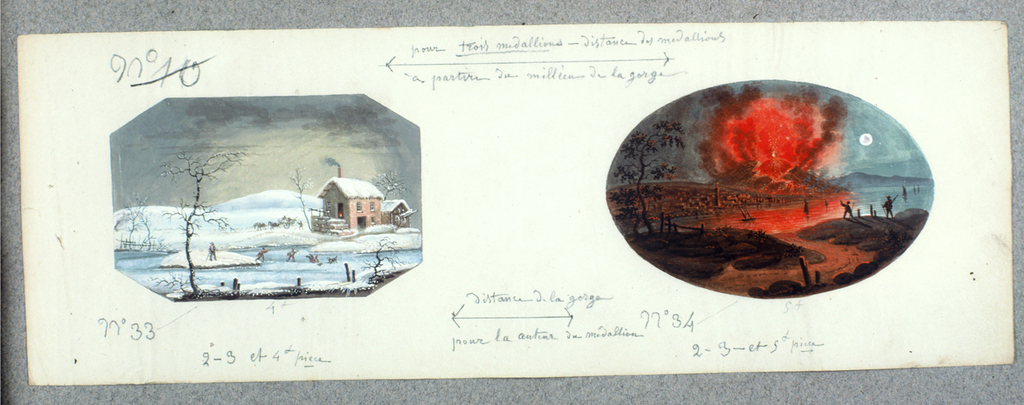 pour trois médallions - distance des médallions
à partire du millieu de la gorge
N° 10
distance de la gorge
pour la auteur du médallion
4e
N° 33
2 - 3 et 4e pièce
5e
N° 34
2 - 3 - et 5e pièce